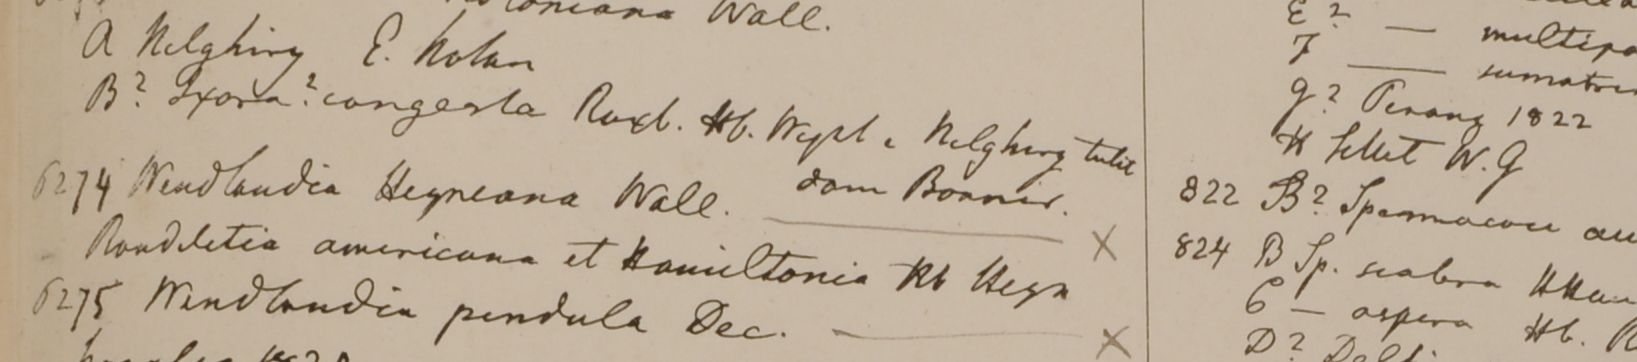 Wall.
A Nelghiry E. Nolan
B? Ixora? congesta Roxb. Hb. Wight e Nelghiry tulit
dom Bonnier.
6274 Wendlandia Heyneana Wall.
Rondeletia americana et Hamiltonia Hb Heyn
6275 Wendlandia pendula Dec.
E? — multipa
F — sumatr
g? Penang 1822
H Sillet W.G
822 B? Spermacoce au
824 B Sp. scabra HHam
C — aspera Hb. R
D?